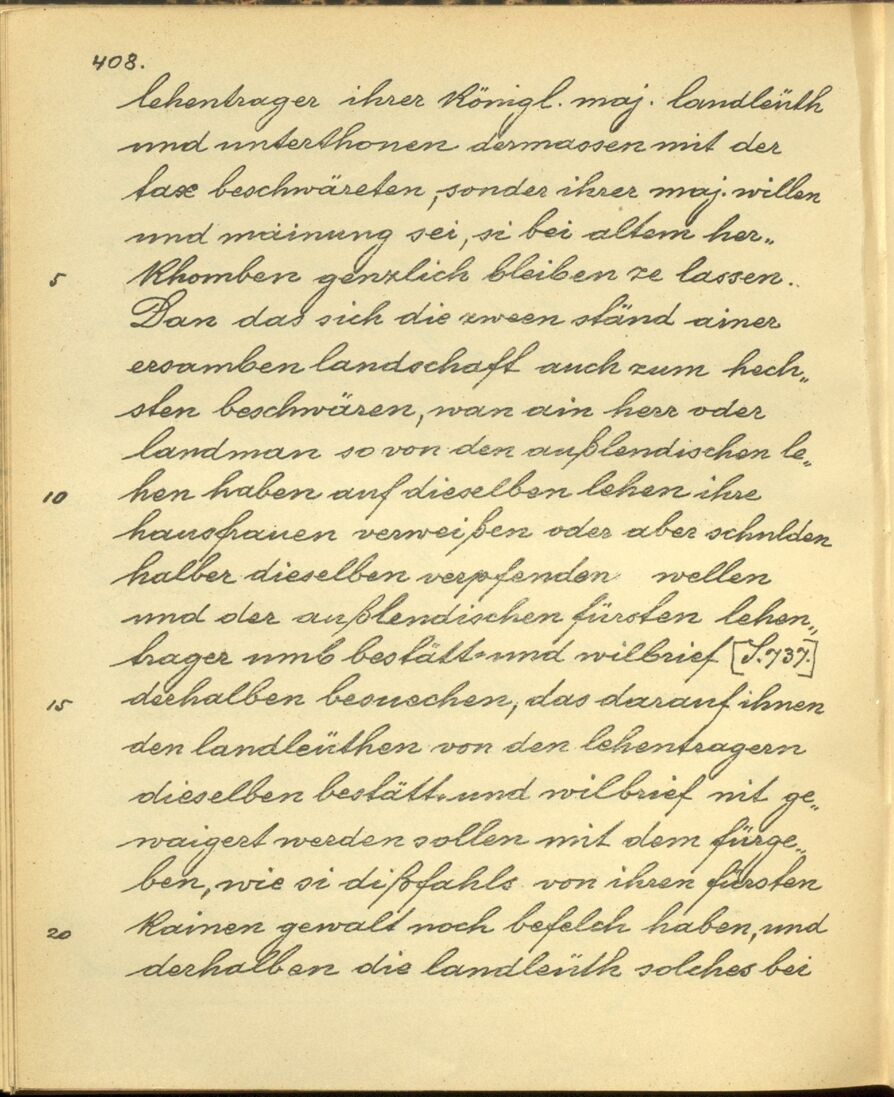 408.
lehentrager ihrer königl. maj. landleüth
und unterthonen dermassen mit der
tax beschwäreten, sonder ihrer maj. willen
und mainung sei, si bei altem her„
5 khomben genzlich bleiben ze lassen.
Dan das sich die zween ständ ainer
ersamben landschaft auch zum hech„
sten beschwären, wan ain herr oder
landman so von den außlendischen le„
10 hen haben auf dieselben lehen ihre
hausfrauen verweißen oder aber schulden
halber dieselben verpfenden wellen
und der außlendischen fürsten lehen„
trager umb bestätt- und wilbrief [S. 737.]
15 derhalben besuechen, das darauf ihnen
den landleüthen von den lehentragern
dieselben bestätt- und wilbrief nit ge„
waigert werden sollen mit dem fürge„
ben, wie si dißfahls von ihren fürsten
20 kainen gewalt noch befelch haben, und
derhalben die landleüth solches bei